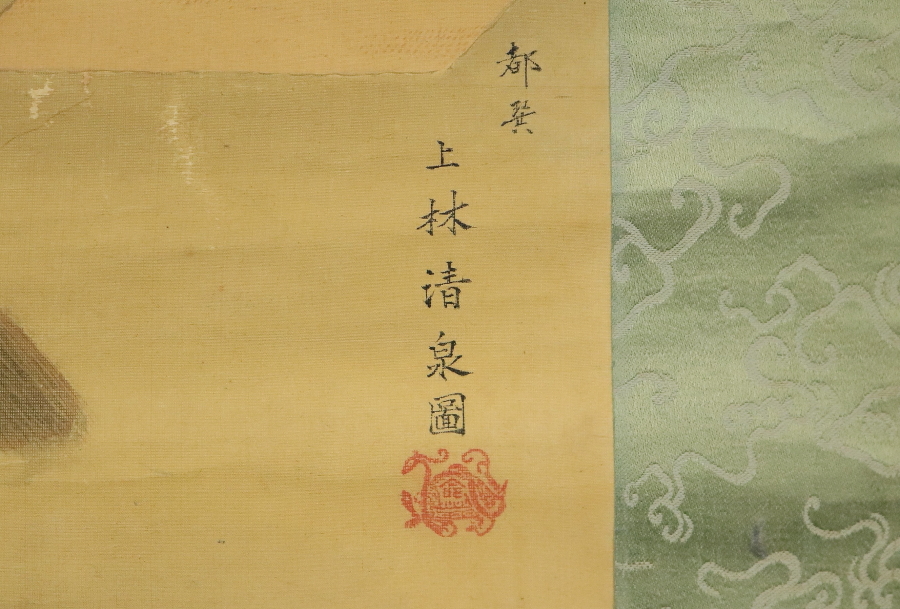 都巽
上林清泉圖